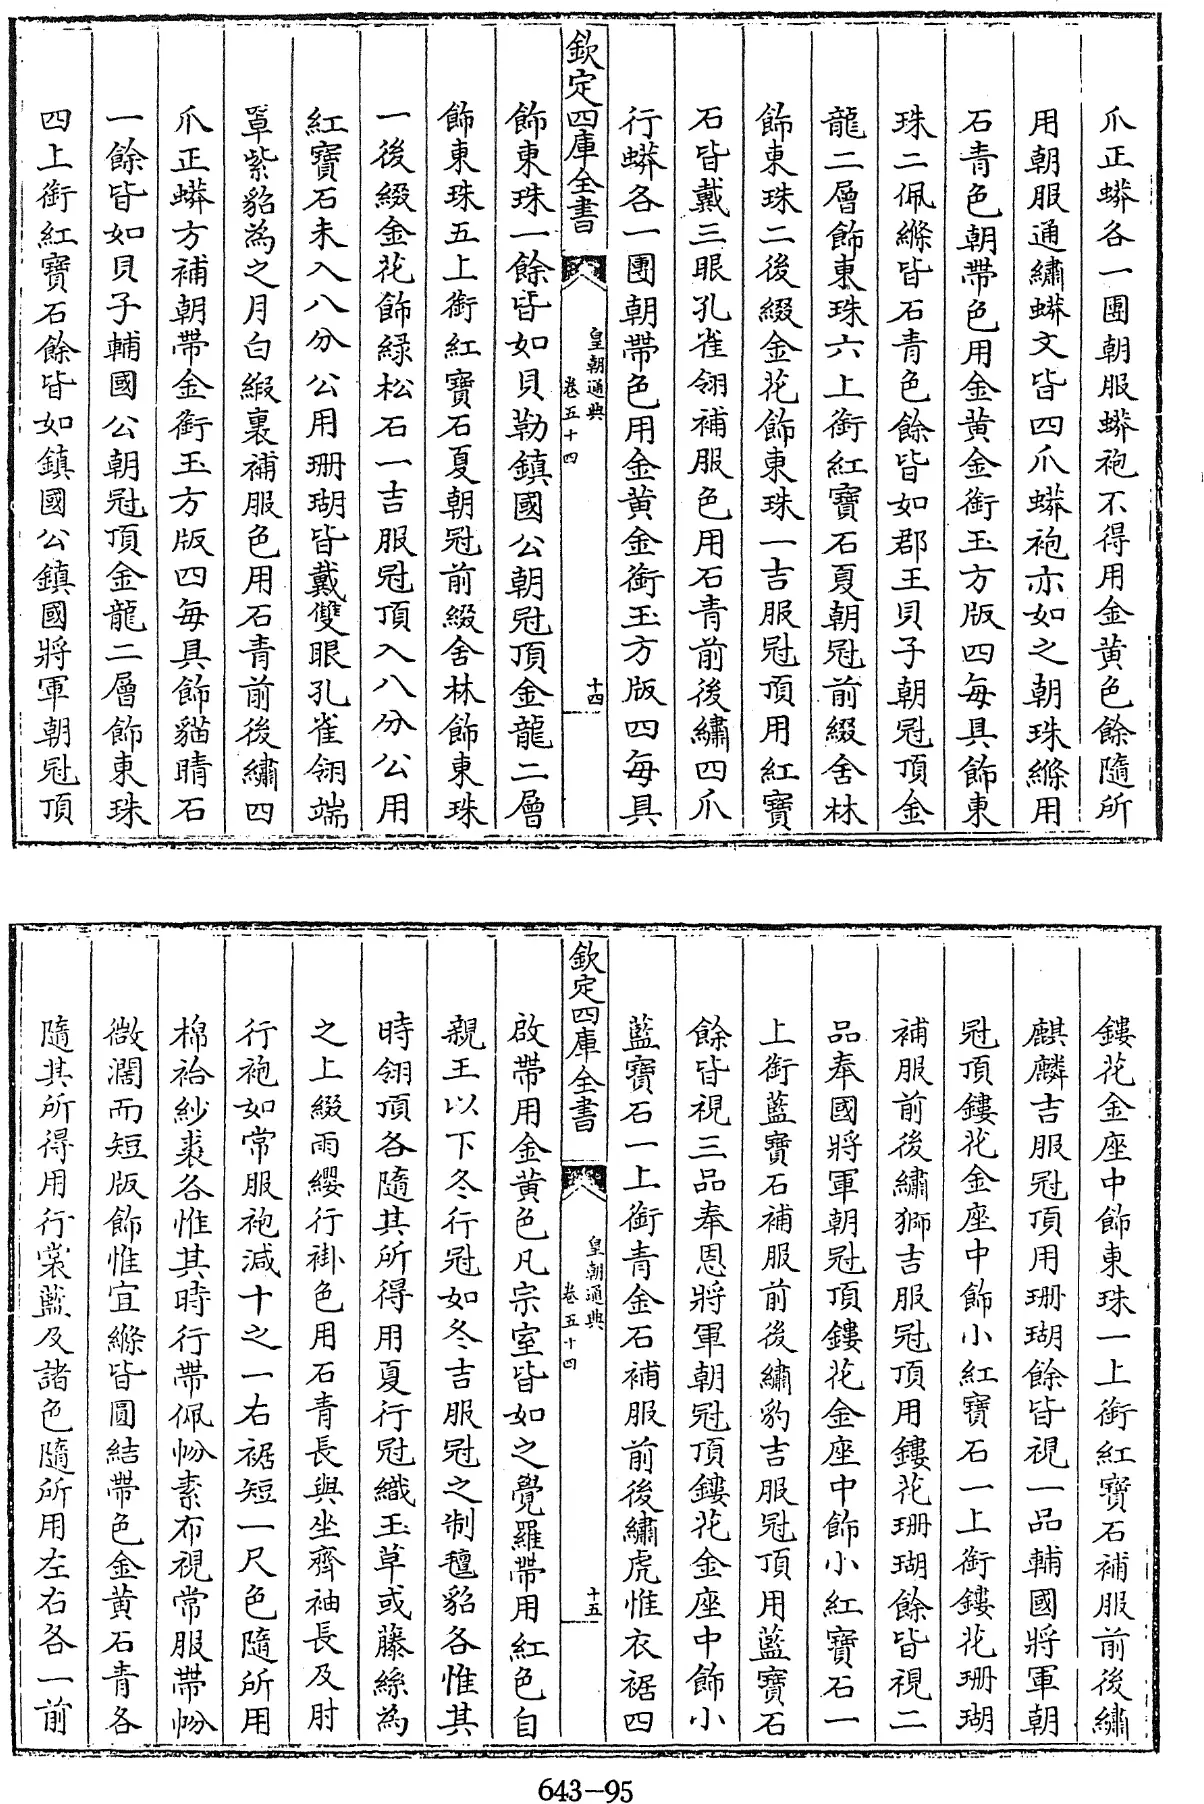 爪正蟒各一團朝服蟒袍不得用金黄色餘隨所
用朝服通繡蟒文皆四爪蟒袍亦如之朝珠縧用
石青色朝帶色用金黄金銜玉方版四每具飾東
珠二佩縧皆石青色餘皆如郡王貝子朝冠頂金
龍二層飾東珠六上銜紅寶石夏朝冠前綴舍林
飾東珠二後綴金花飾東珠一吉服冠頂用紅寶
石皆戴三眼孔雀翎補服色用石青前後繡四爪
行蟒各一團朝帶色用金黄金銜玉方版四每具
欽定四庫全書
皇朝通典
卷五十四
十四
飾東珠一餘皆如貝勒鎮國公朝冠頂金龍二層
飾東珠五上銜紅寶石夏朝冠前綴舍林飾東珠
一後綴金花飾緑松石一吉服冠頂入八分公用
紅寶石未入八分公用珊瑚皆戴雙眼孔雀翎端
罩紫貂為之月白緞裏補服色用石青前後繡四
爪正蟒方補朝帶金銜玉方版四每具飾貓睛石
一餘皆如貝子輔國公朝冠頂金龍二層飾東珠
四上銜紅寶石餘皆如鎮國公鎮國將軍朝冠頂
鏤花金座中飾東珠一上銜紅寶石補服前後繡
麒麟吉服冠頂用珊瑚餘皆視一品輔國將軍朝
冠頂鏤花金座中飾小紅寶石一上銜鏤花珊瑚
補服前後繡獅吉服冠頂用鏤花珊瑚餘皆視二
品奉國將軍朝冠頂鏤花金座中飾小紅寶石一
上銜藍寶石補服前後繡豹吉服冠頂用藍寶石
餘皆視三品奉恩將軍朝冠頂鏤花金座中飾小
藍寶石一上銜青金石補服前後繡虎惟衣裾四
欽定四庫全書
皇朝通典
卷五十四
十五
啟帶用金黄色凡宗室皆如之覺羅帶用紅色自
親王以下冬行冠如冬吉服冠之制氊貂各惟其
時翎頂各隨其所得用夏行冠織玉草或藤絲為
之上綴雨纓行褂色用石青長與坐齊袖長及肘
行袍如常服袍減十之一右裾短一尺色隨所用
棉袷紗裘各惟其時行帶佩帉素布視常服帶帉
微濶而短版飾惟宜縧皆圓結帶色金黄石青各
隨其所得用行裳藍及諸色隨所用左右各一前
643-95